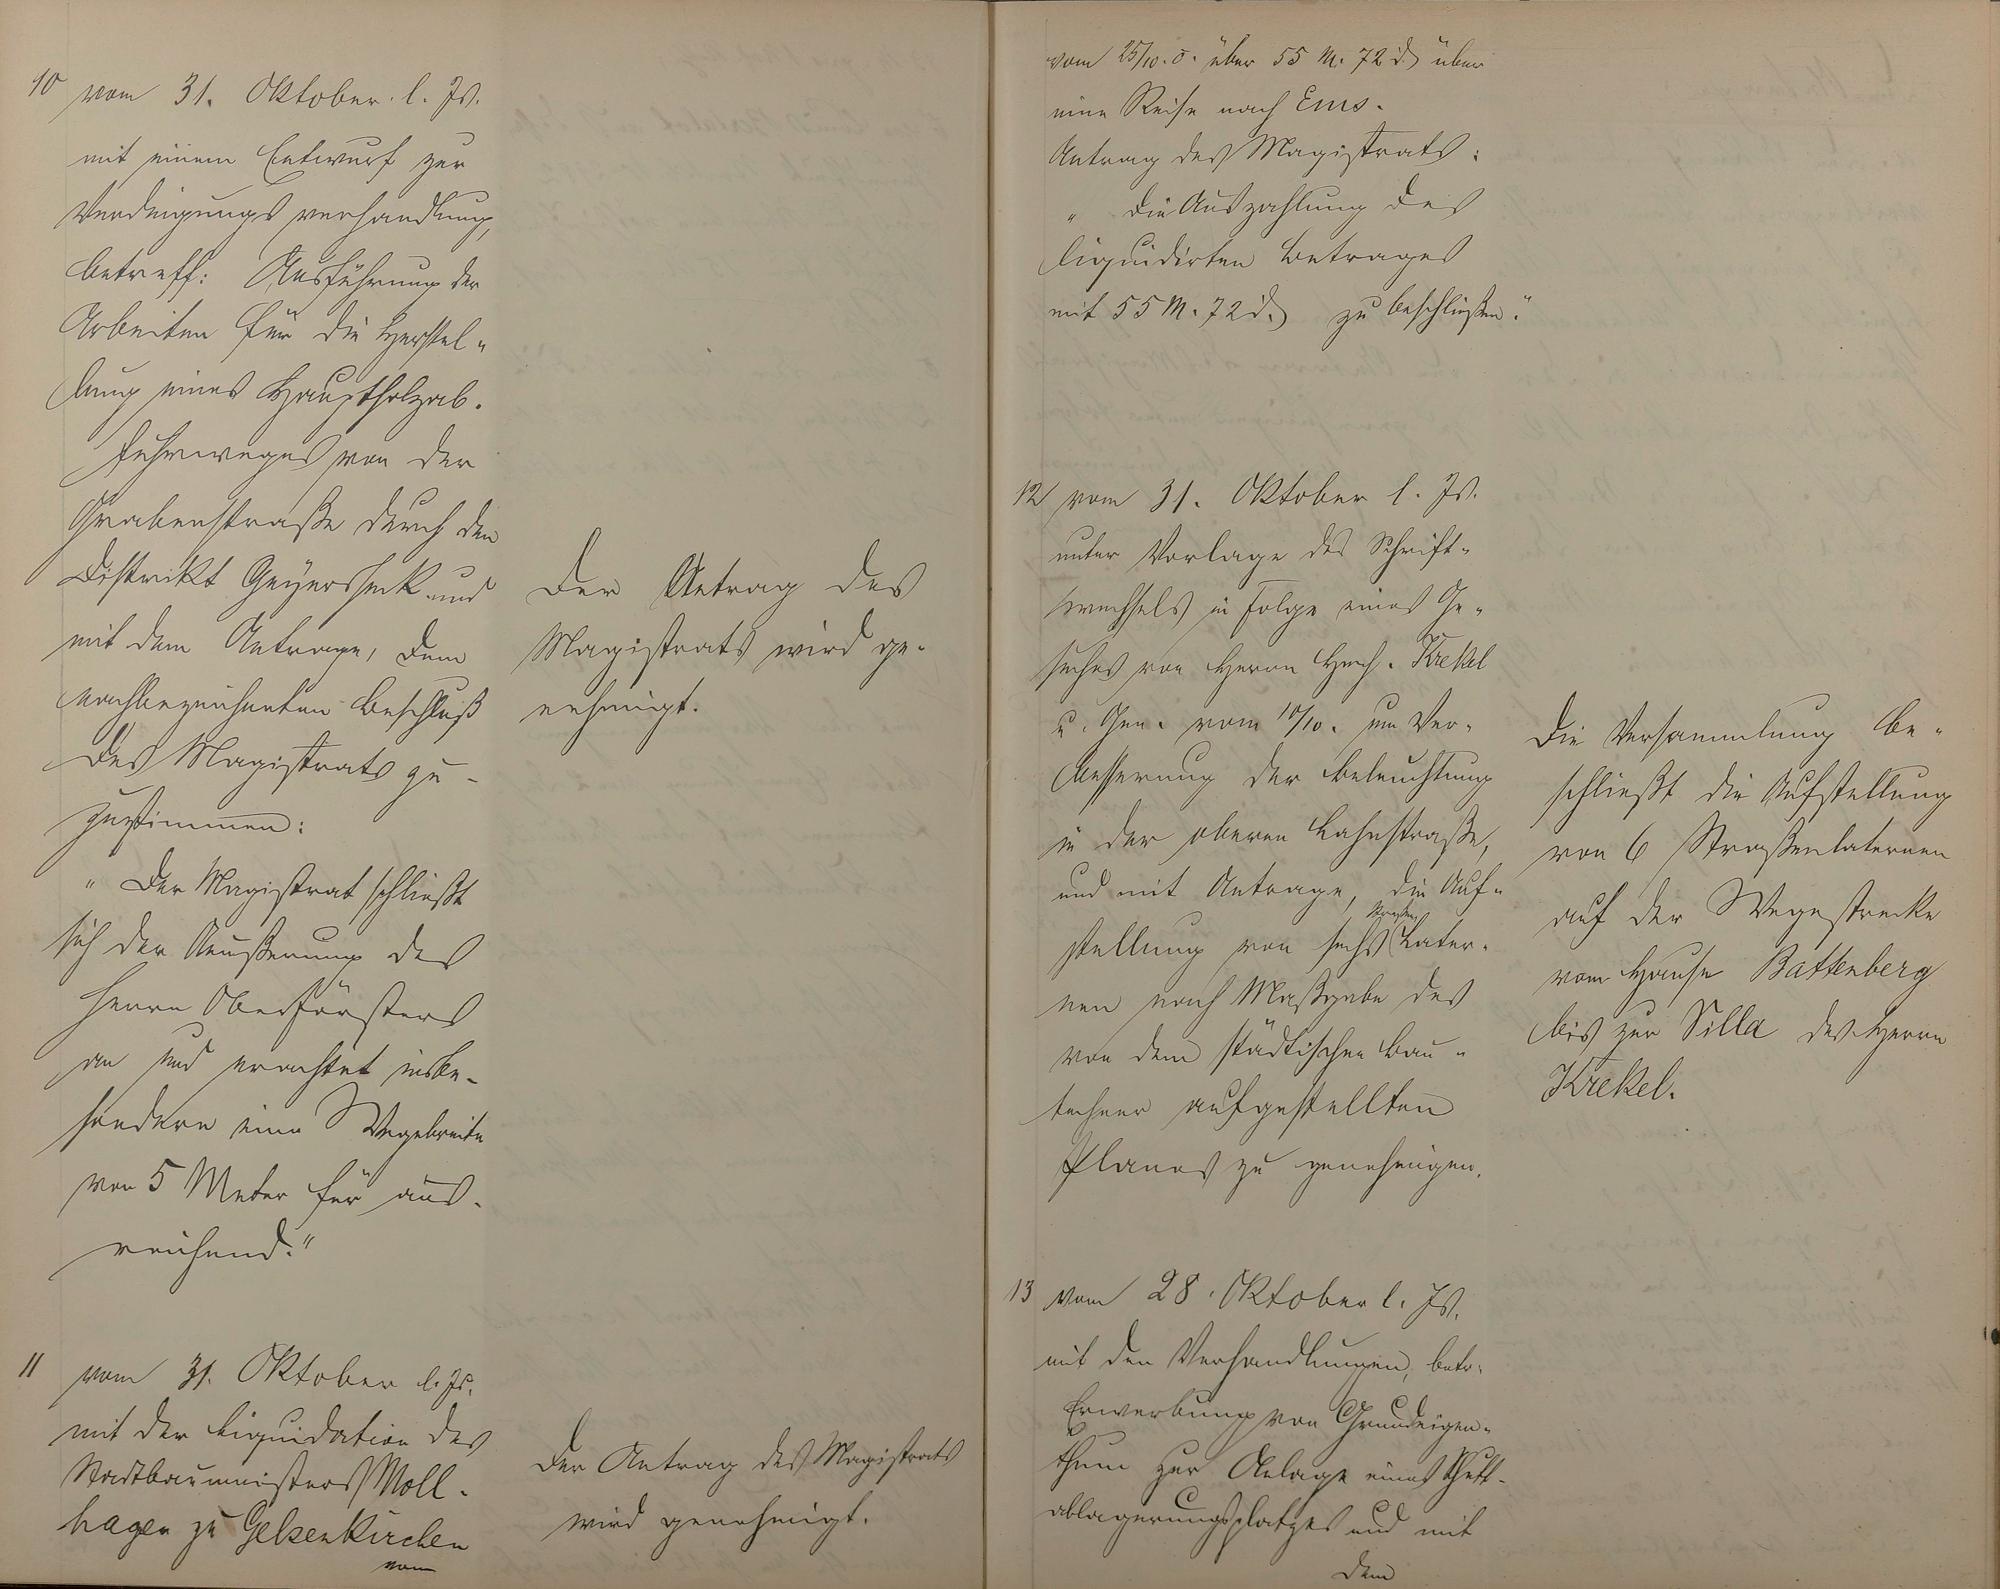 10 vom 31. Oktober l. Js.
mit einem Entwurf zur
Verdingungsverhandlung,
betreff: Ausführung der
Arbeiten für die Herstel-
lung eines Hauptholzab-
fuhrweges von der
Grabenstraße durch den
Distrikt Geyersheck und
mit dem Antrage, dem
nachbezeichneten Beschluß
des Magistrats zu-
zustimmen:
"Der Magistrat schließt
sich der Aeußerung des
Herrn Oberförsters
an und erachtet insbe-
sondere eine Wegebreite
von 5 Meter für aus-
reichend."
Der Antrag des
Magistrats wird ge-
nehmigt.
11 vom 31. Oktober l. Js.
mit der Liquidation des
Stadtbaumeisters Moll-
hagen zu Gelsenkirchen
vom
Der Antrag des Magistrats
wird genehmigt.
vom 25/10. d. über 55 M. 72 d. über
eine Reise nach Ems.
Antrag des Magistrats:
"die Auszahlung des
liquidirten Betrages
mit 55 M. 72 d. zu beschließen."
12 vom 31. Oktober l. Js.
unter Vorlage des Schrift-
wechsels in Folge eines Ge-
suches von Herrn Hch. Krekel
u. Gen. vom 10/10. um Ver-
besserung der Beleuchtung
in der oberen Lahnstraße,
und mit Antrage, die Auf-
stellung von sechs Straßen Later-
nen nach Maßgabe des
von dem städtischen Bau-
techner aufgestellten
Planes zu genehmigen.
Die Versammlung be-
schließt die Aufstellung
von 6 Straßenlaternen
auf der Wegestrecke
vom Hause Battenberg
bis zur Villa des Herrn
Krekel.
13 vom 28. Oktober l. Js.
mit den Verhandlungen, betr.
Erwerbung von Grundeigen-
thum zur Anlage eines Schutt-
ablagerungsplatzes und mit
dem